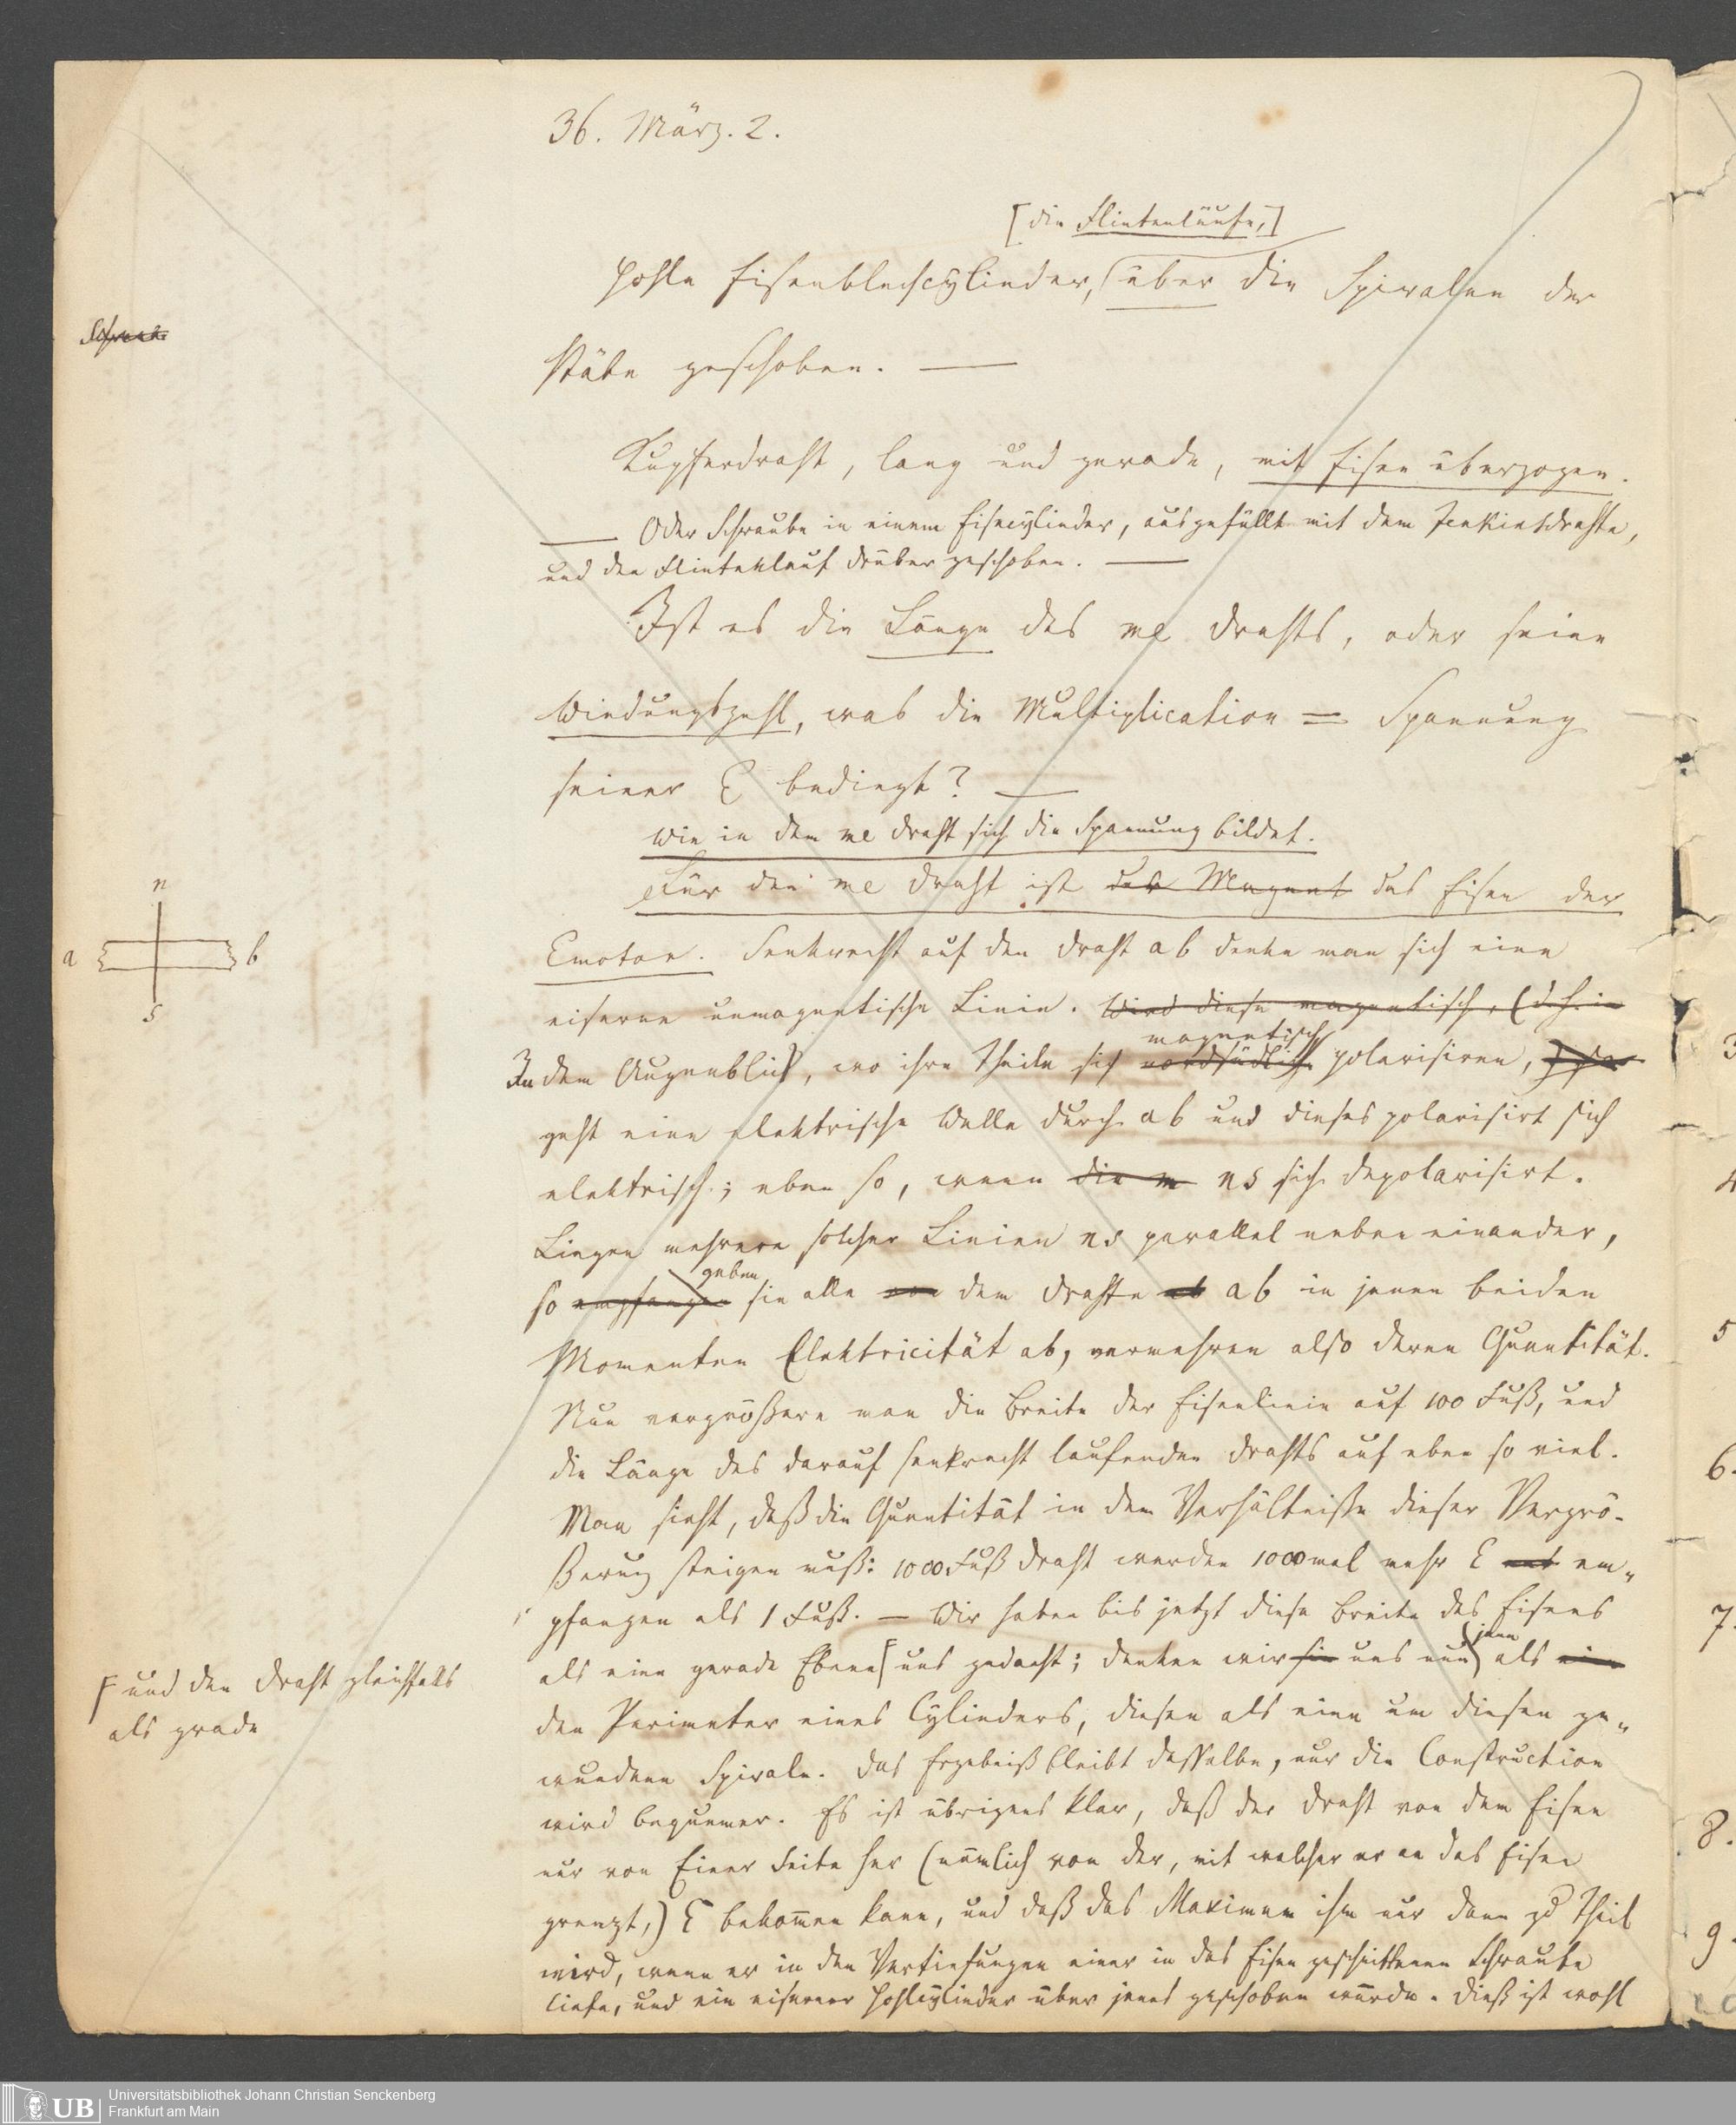 36. März. 2.
[die Flintenläufe,]
Hohle Eisenblechcylinder, über die Spiralen der
Stäbe geschoben. —
Kupferdraht, lang und gerade, mit Eisen überzogen.
— Oder Schraube in einem Eisencylinder, ausgefüllt mit dem Jenkinsdrahte,
und den Flintenlauf drüber geschoben. —
Ist es die Länge des me Drahts, oder seine
Windungszahl, was die Multiplication = Spannung
seiner E bedingt? —
Wie in dem me Draht sich die Spannung bildet.
Für den me Draht ist der Magnet das Eisen der
Emotor. Senkrecht auf den Draht ab denke man sich eine
n
a b
s
eiserne unmagnetische Linie. Wird diese magnetisch, (d.h. in
magnetisch
In dem Augenblick, wo ihre Theile sich nordsüdlich polarisiren,
geht eine elektrische Welle durch ab und dieses polarisirt sich
elektrisch; eben so, wenn die m ns sich depolarisirt.
Liegen mehrere solcher Linien ns parallel neben einander,
geben
so empfangen sie alle von dem Drahte ab ab in jenen beiden
Momenten Elektricität ab, vermehren also deren Quantität.
Nun vergrößere man die Breite der Eisenlinie auf 100 Fuß, und
die Länge des darauf senkrecht laufenden Drahts auf eben so viel.
Man sieht, daß die Quantität in dem Verhältnisse dieser Vergrö-
ßerung steigen muß: 1000 Fuß Draht werden 1000 mal mehr E ent em„
pfangen als 1 Fuß. — Wir haben bis jetzt diese Breite des Eisens
jene
als eine gerade Ebene uns gedacht; denken wir sie uns nun als ein
┌ und den Draht gleichfalls
als grade
den Perimeter eines Cylinders, diesen als eine um diesen ge„
wundene Spirale. Das Ergebniß bleibt dasselbe, nur die Construction
wird bequemer. Es ist übrigens klar, daß der Draht von dem Eisen
nur von Einer Seite her (nämlich von der, mit welcher er an das Eisen
grenzt,) E bekomen kann, und daß das Maximum ihm nur dann zu Theil
wird, wenn er in den Vertiefungen einer in das Eisen geschnittenen Schraube
liefe, und ein eiserner Hohlcylinder über jenes geschoben würde. Dieß ist wohl
3
4
5
6.
7.
8.
9.
UB Universitätsbibliothek Johann Christian Senckenberg
Frankfurt am Main